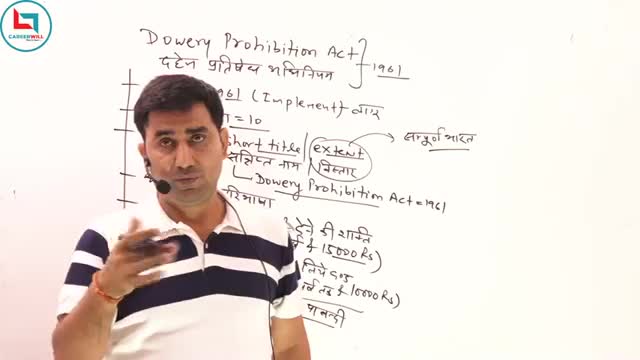 CAREERWILL
Dowery Prohibition Act
दहेज प्रतिषेध अधिनियम
1961
1961 (Implement)
= 10
short title / extent
सम्पूर्ण भारत
संक्षिप्त नाम / विस्तार
Dowery Prohibition Act = 1961
परिभाषा
देने की शास्ति
15000 Rs)
लिये दण्ड
10000 Rs)
पाबन्दी